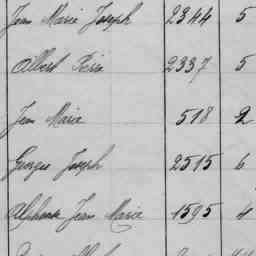 Jean Marie Joseph 2344 5
Albert Pierre 2337 5
Jean Marie 518 2
Georges Joseph 2515 6
Alphonse Jean Marie 1595 4